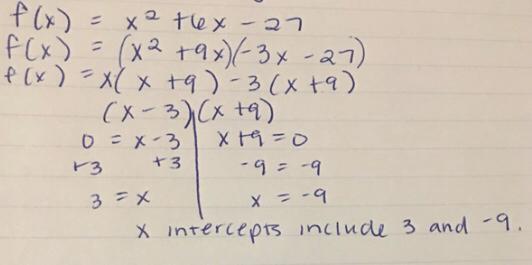 f(x) = x² + 6x - 27
f(x) = (x² + 9x)(-3x - 27)
f(x) = x(x + 9) - 3(x + 9)
(x - 3)(x + 9)
0 = x - 3 | x + 9 = 0
+3 +3 | -9 = -9
3 = x | x = -9
x intercepts include 3 and -9.